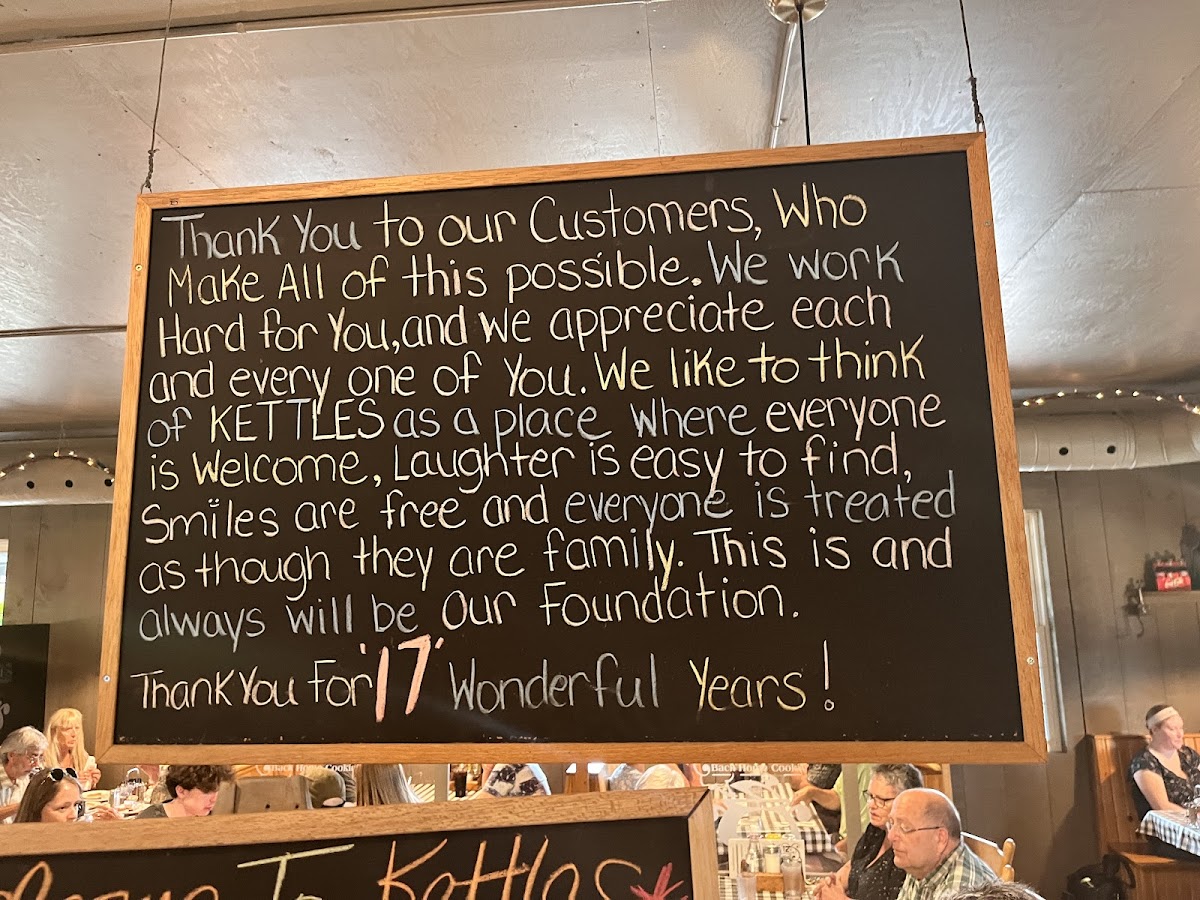 Thank You to our Customers, Who
Make All of this possible. We work
Hard for You, and we appreciate each
and every one of You. We like to think
of KETTLES as a place where everyone
is Welcome, Laughter is easy to find,
Smiles are free and everyone is treated
as though they are family. This is and
always will be our Foundation.
Thank You For '17' Wonderful Years!
To Kettles